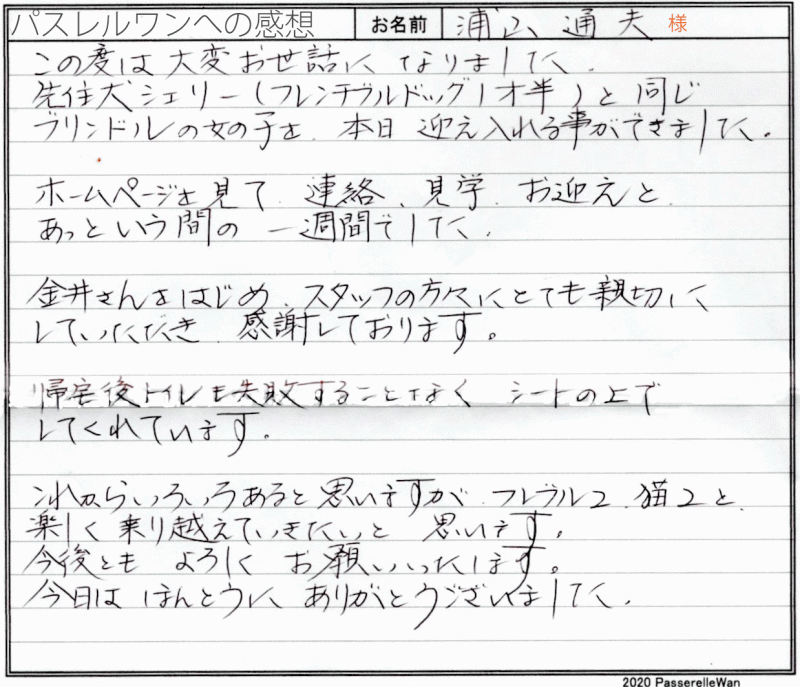 パスレルワンへの感想 お名前 浦山 通夫 様
この度は大変お世話になりました.
先住犬シェリー(フレンチブルドッグ1才半)と同じ
ブリンドルの女の子を、本日迎え入れる事ができました。
ホームページを見て、連絡、見学、お迎えと、
あっという間の一週間でした.
金井さんをはじめ、スタッフの方々にとても親切に
していただき、感謝しております。
帰宅後トイレも失敗することなく シートの上で
してくれています。
これからいろいろあると思いますが、フレブル2、猫2と、
楽しく乗り越えていきたいと 思います。
今後とも よろしく お願いいたします。
今日は ほんとうに ありがとうございました.
2020 PasserelleWan